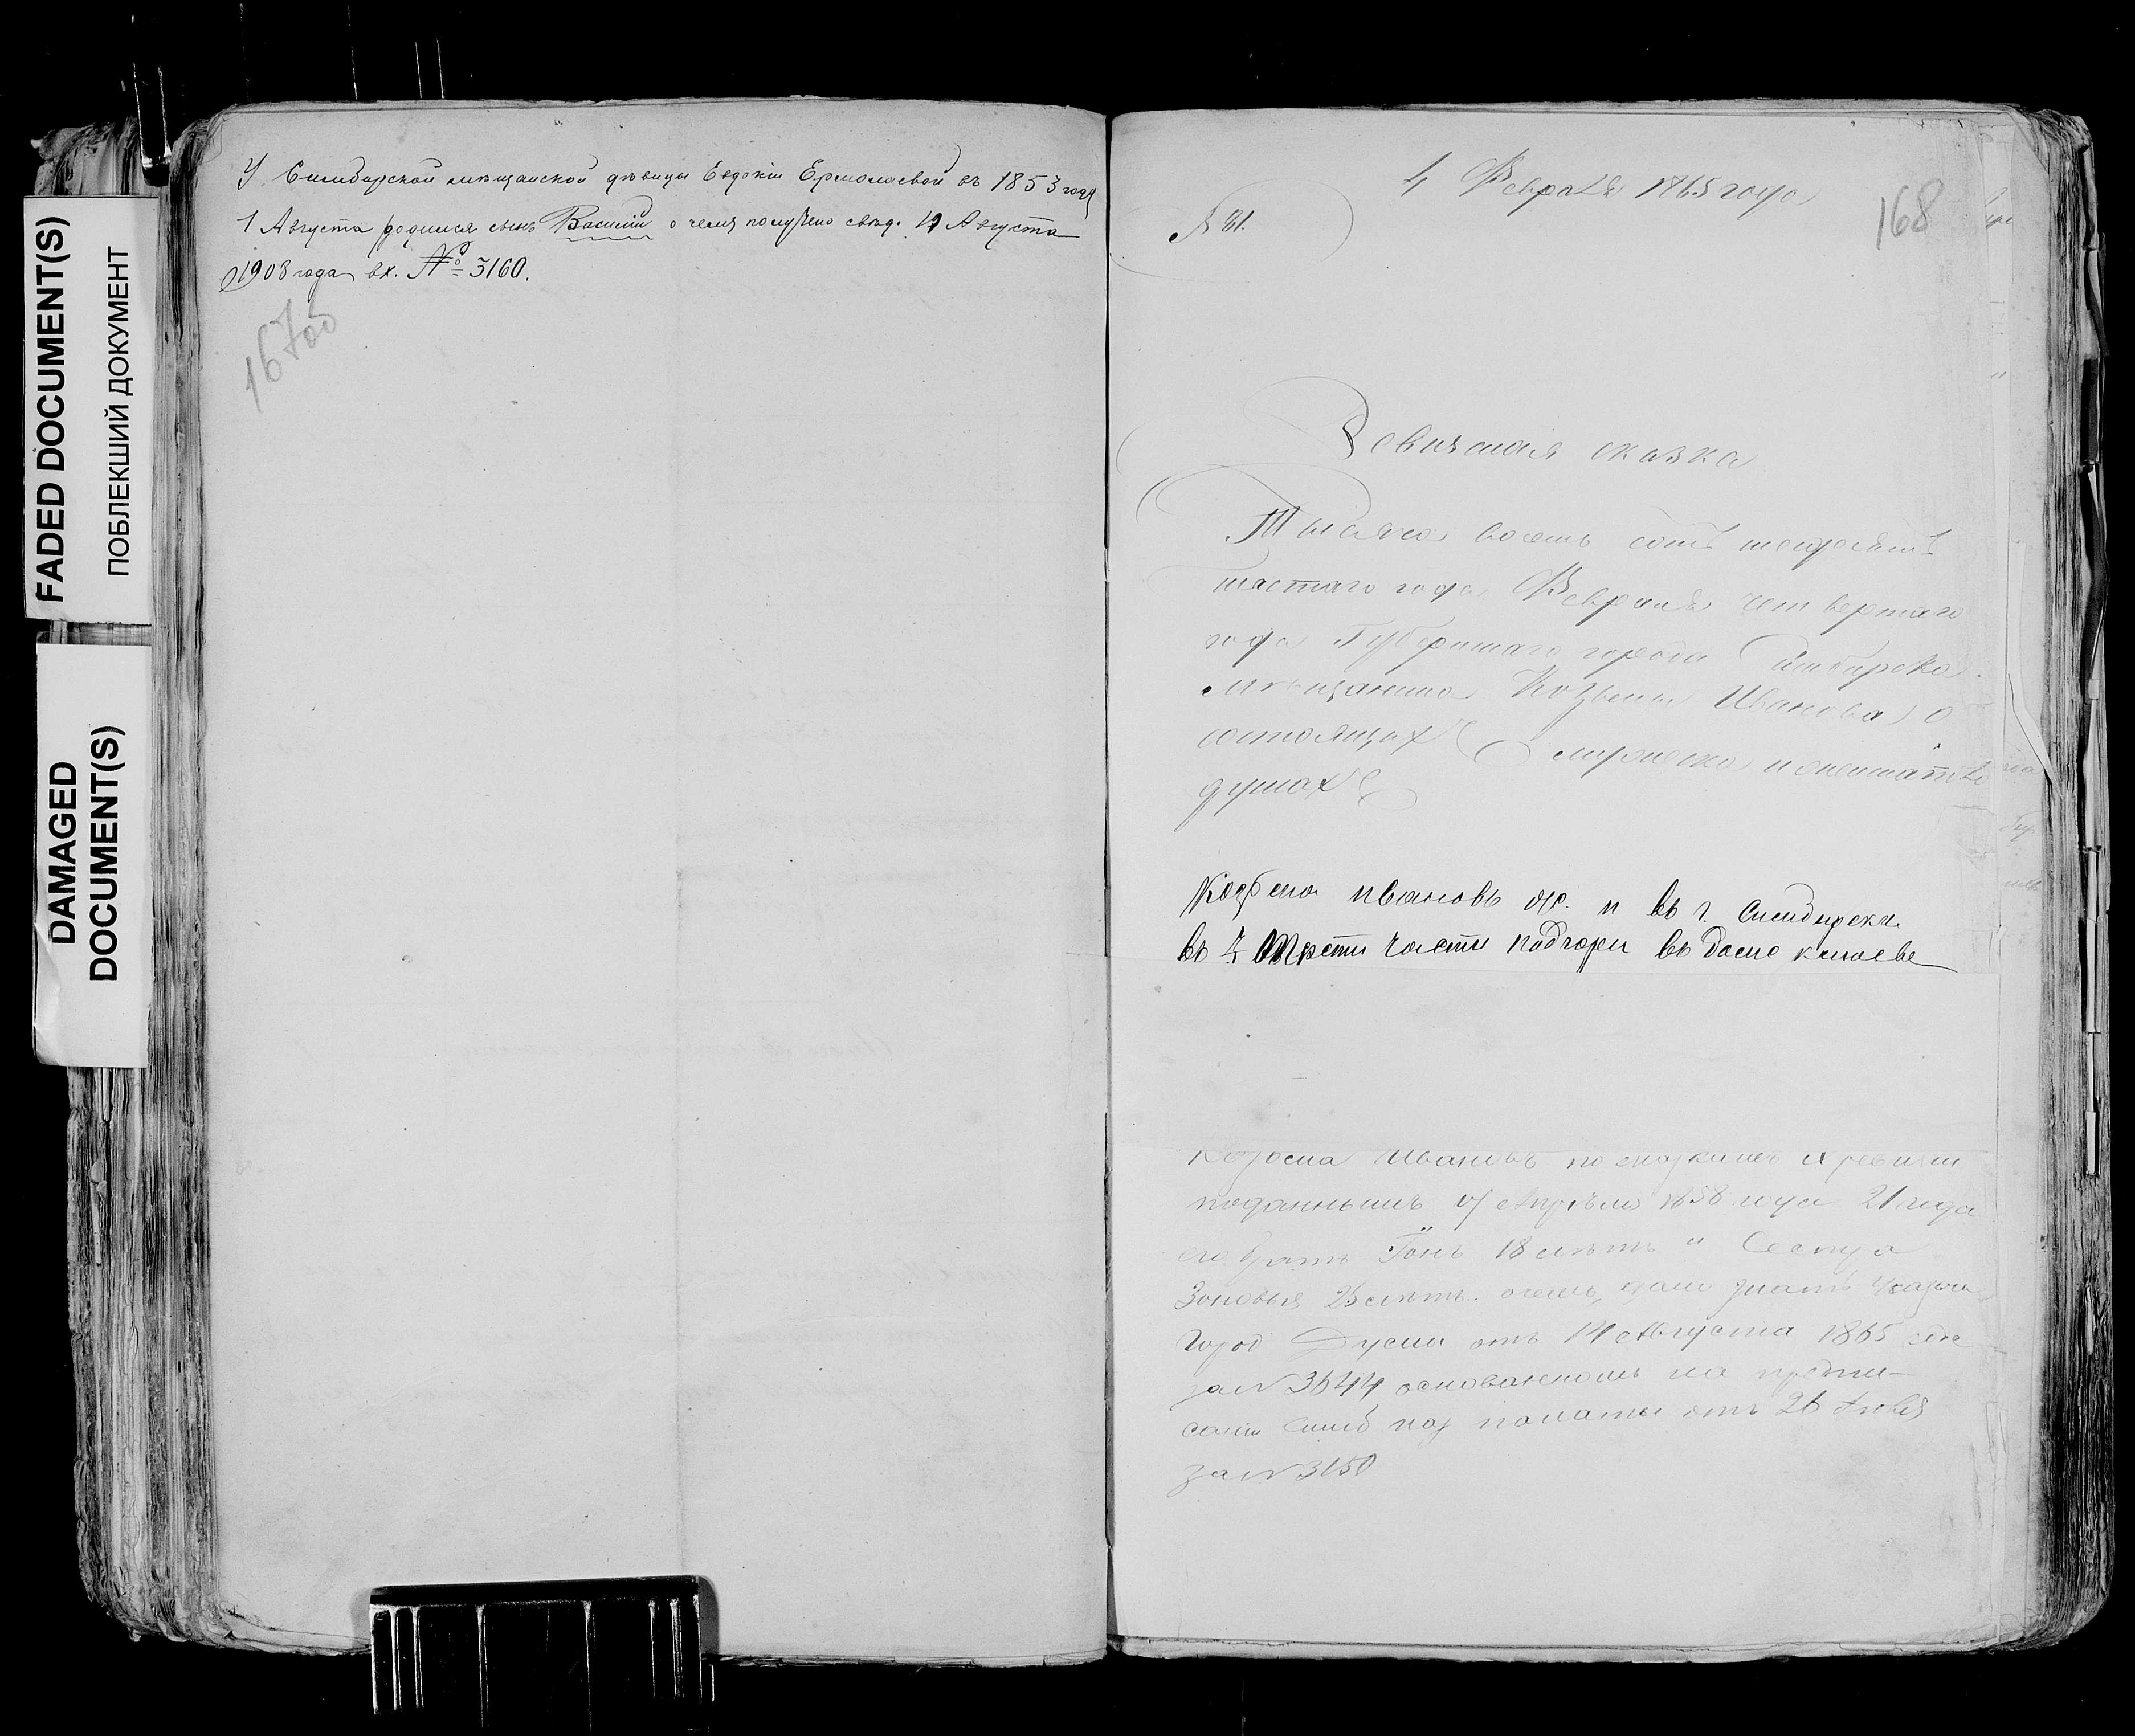 FADED DOCUMENT(S)
ПОБЛЕКШИЙ ДОКУМЕНТ
DAMAGED
DOCUMENT(S)
У Симбирской мѣщанской дѣвицы Евдокіи Ермолаевой въ 1853 году
1 Августа родился сынъ Василій о чемъ получено свѣд. 4 Августа
1908 года вх. № 3160.
167об
4 Февраля 1865 года
168
№ 81.
Ревизская сказка
Тысяча восемь сотъ шесдесятъ
шастаго года Февраля четвертаго
года Губернскаго города Симбирска
мѣщанина Козьмы Иванова о
состоящихъ мужеска и женска
душахъ
Козьма Ивановъ ж. и въ г. Симбирскѣ
въ 1 части подгоры въ доме
Козьма Ивановъ по сказкамъ ревизии
поданнымъ Апрѣля 1858 года 21 года
его братъ 18 лѣтъ " Сестра
Зоновья 25 лѣтъ. о чемъ дано знать Указом
Город Думы отъ 14 Августа 1865
за № 3644 основанномъ на предпи-
сании Симб каз палаты отъ 26 Июля
за № 3150